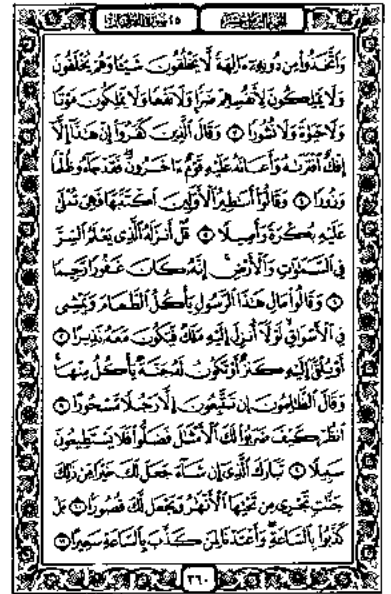 وَٱتَّخَذُوا۟ مِن دُونِهِۦٓ ءَالِهَةً لَّا يَخْلُقُونَ شَيْـًٔا وَهُمْ يُخْلَقُونَ
وَلَا يَمْلِكُونَ لِأَنفُسِهِمْ ضَرًّا وَلَا نَفْعًا وَلَا يَمْلِكُونَ مَوْتًا
وَلَا حَيَوٰةً وَلَا نُشُورًا ٣ وَقَالَ ٱلَّذِينَ كَفَرُوٓا۟ إِنْ هَـٰذَآ إِلَّآ
إِفْكٌ ٱفْتَرَىٰهُ وَأَعَانَهُۥ عَلَيْهِ قَوْمٌ ءَاخَرُونَ فَقَدْ جَآءُو ظُلْمًا
وَزُورًا ٤ وَقَالُوٓا۟ أَسَـٰطِيرُ ٱلْأَوَّلِينَ ٱكْتَتَبَهَا فَهِىَ تُمْلَىٰ
عَلَيْهِ بُكْرَةً وَأَصِيلًا ٥ قُلْ أَنزَلَهُ ٱلَّذِى يَعْلَمُ ٱلسِّرَّ
فِى ٱلسَّمَـٰوَٰتِ وَٱلْأَرْضِ إِنَّهُۥ كَانَ غَفُورًا رَّحِيمًا
٦ وَقَالُوا۟ مَالِ هَـٰذَا ٱلرَّسُولِ يَأْكُلُ ٱلطَّعَامَ وَيَمْشِى
فِى ٱلْأَسْوَاقِ لَوْلَآ أُنزِلَ إِلَيْهِ مَلَكٌ فَيَكُونَ مَعَهُۥ نَذِيرًا ٧
أَوْ يُلْقَىٰٓ إِلَيْهِ كَنزٌ أَوْ تَكُونُ لَهُۥ جَنَّةٌ يَأْكُلُ مِنْهَا
وَقَالَ ٱلظَّـٰلِمُونَ إِن تَتَّبِعُونَ إِلَّا رَجُلًا مَّسْحُورًا ٨
ٱنظُرْ كَيْفَ ضَرَبُوا۟ لَكَ ٱلْأَمْثَـٰلَ فَضَلُّوا۟ فَلَا يَسْتَطِيعُونَ
سَبِيلًا ٩ تَبَارَكَ ٱلَّذِىٓ إِن شَآءَ جَعَلَ لَكَ خَيْرًا مِّن ذَٰلِكَ
جَنَّـٰتٍ تَجْرِى مِن تَحْتِهَا ٱلْأَنْهَـٰرُ وَيَجْعَل لَّكَ قُصُورًۢا ١٠ بَلْ
كَذَّبُوا۟ بِٱلسَّاعَةِ وَأَعْتَدْنَا لِمَن كَذَّبَ بِٱلسَّاعَةِ سَعِيرًا ١١
٣٦٠